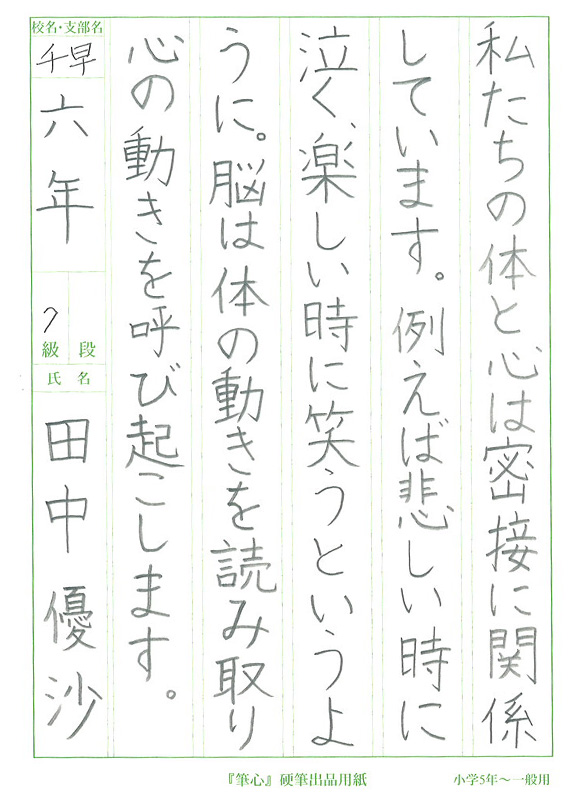 私たちの体と心は密接に関係
しています。例えば悲しい時に
泣く、楽しい時に笑うというよ
うに。脳は体の動きを読み取り
心の動きを呼び起こします。
校名・支部名
千早
六年
ク
級 段
氏名
田中優沙
『筆心』硬筆出品用紙
小学5年～一般用